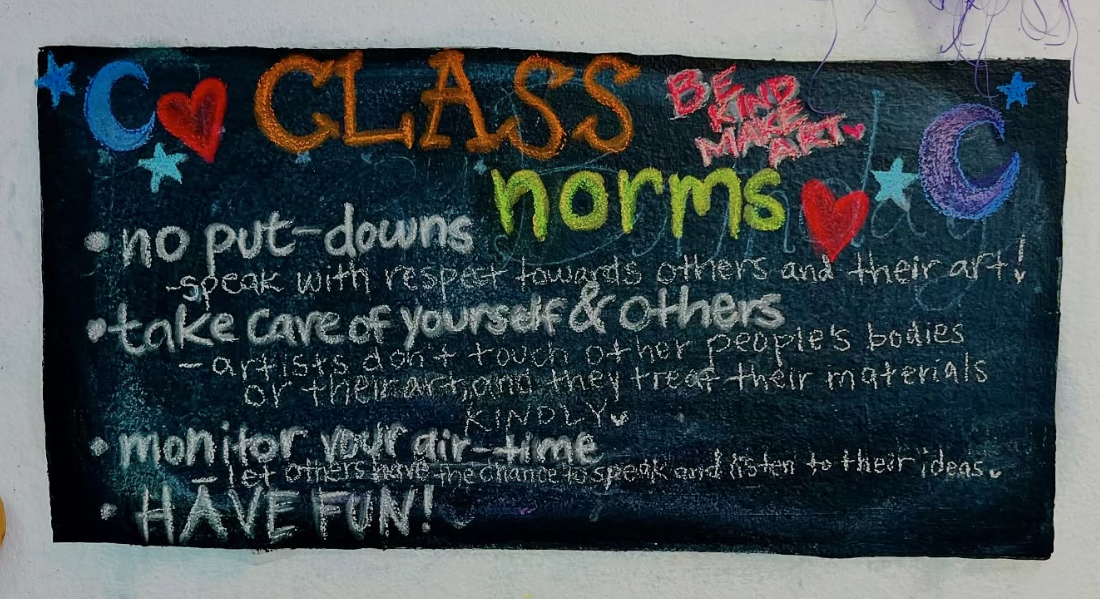 CLASS
BE
KIND
MAKE
ART
norms
• no put-downs
-speak with respect towards others and their art!
• take care of yourself & others
- artists don't touch other people's bodies
or their art, and they treat their materials
KINDLY
• monitor your air-time
- let others have the chance to speak and listen to their ideas.
• HAVE FUN!